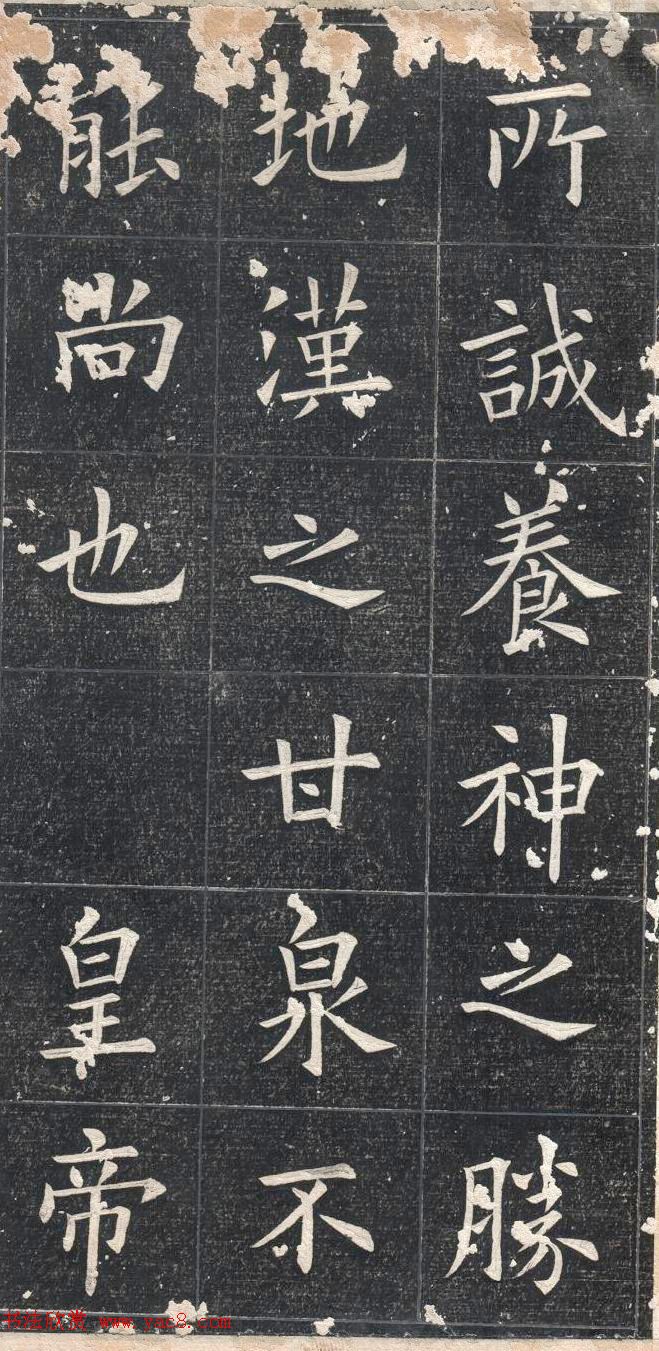 所誠養神之勝
地漢之甘泉不
能尚也 皇帝
书法欣赏 www.yac8.com